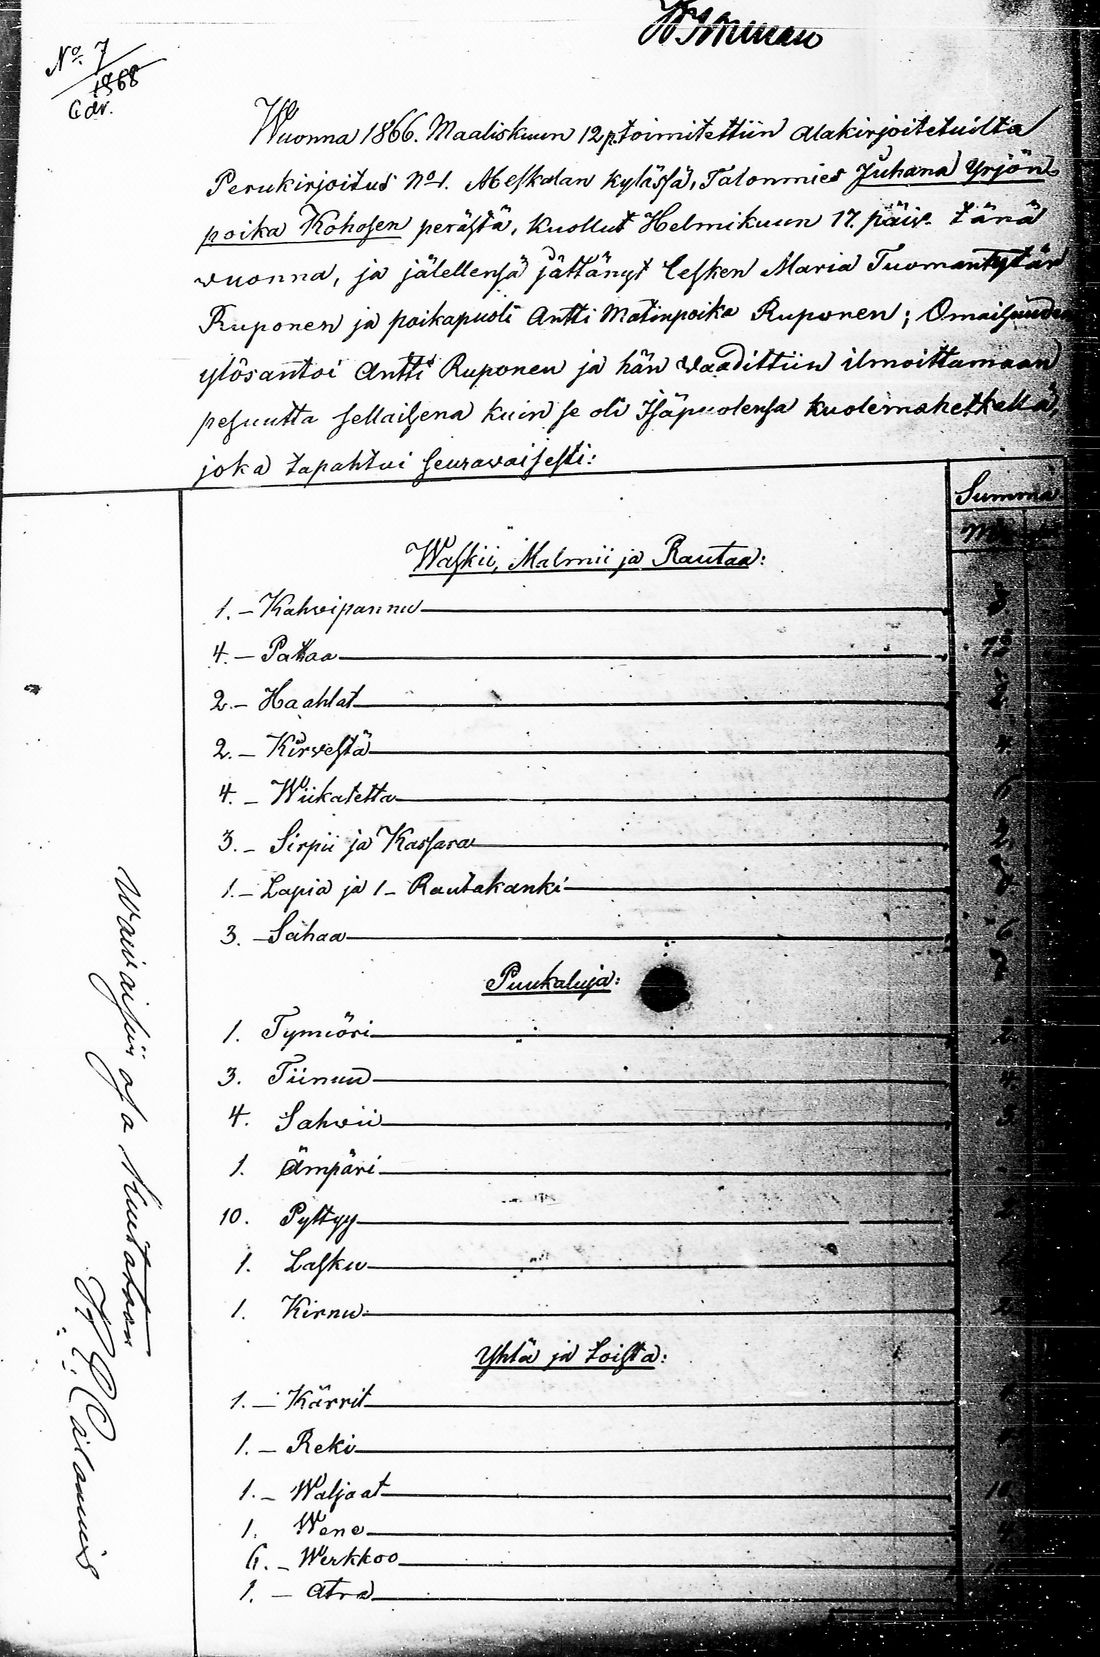 No. 7
1868
Wuonna 1866. Maaliskuun 12 p. toimitettiin alakirjoitetuilta
Perukirjoitus No 1. Meskalan kylässä, Talonmies Juhana Yrjön
poika Kohosen perästä, kuollut Helmikuun 17. päiv. tänä
vuonna, ja jälellensä jättänyt lesken Maria Tuomantytär
Ruponen ja poikapuoli Antti Matinpoika Ruponen; Omaisuuden
ylösantoi Antti Ruponen ja hän vaadittiin ilmoittamaan
pesuutta sellaisena kuin se oli Isäpuolensa kuolemahetkellä,
joka tapahtui seuravaisesti:
Summa
Waskii, Malmii ja Rautaa:
1. – Kahvipannu
4. – Pataa 12
2. – Haahlat
2. – Kirvestä 4
4. – Wiikatetta 6
3. – Sirpii ja Kassara 2
1. – Lapia ja 1 – Rautakanki
3. – Sahaa 6
Puukaluja:
1. Tynnöri 2
3. Tiinuu 4
4. Sahvii 3
1. Ämpäri
10. Pyttyy 2
1. Lasku
1. Kirnu 2
Yhtä ja toista:
1. – Kärrit
1. – Reki
1. – Waljaat 10
1. Wene 4
6. – Werkkoo
1. – Atra
Waivaisii oja kuutatoon